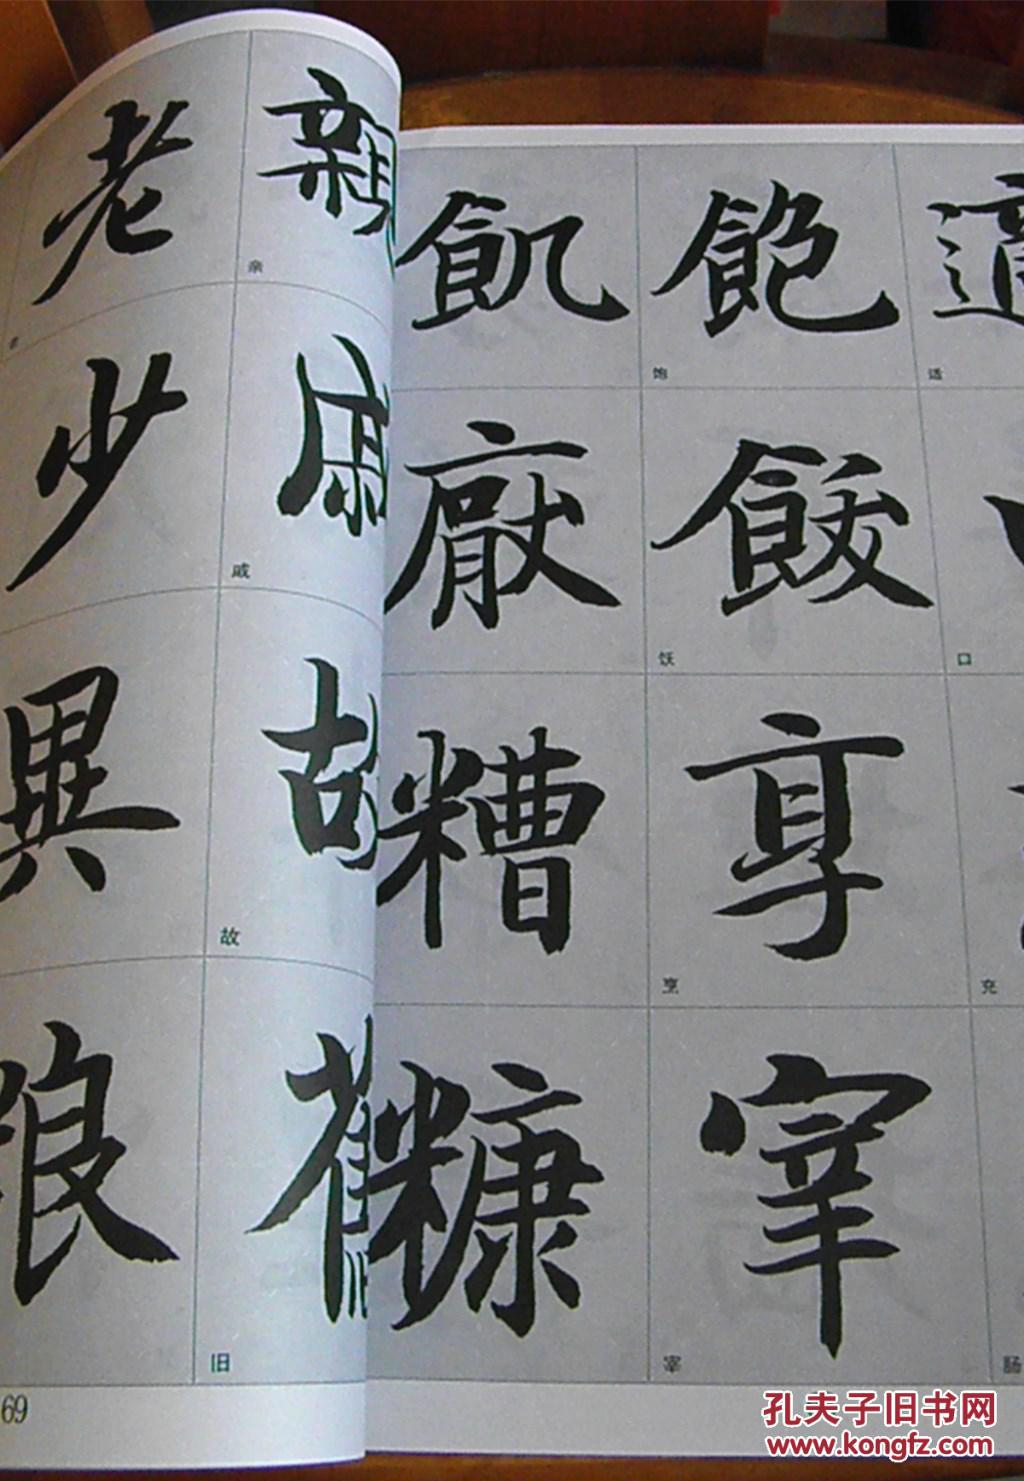 適
适
口
充
肠
飽飫享宰
饱
饫
烹
宰
飢厭糟糠
親戚故舊
亲
戚
故
旧
老少異粮
69
孔夫子旧书网
www.kongfz.com